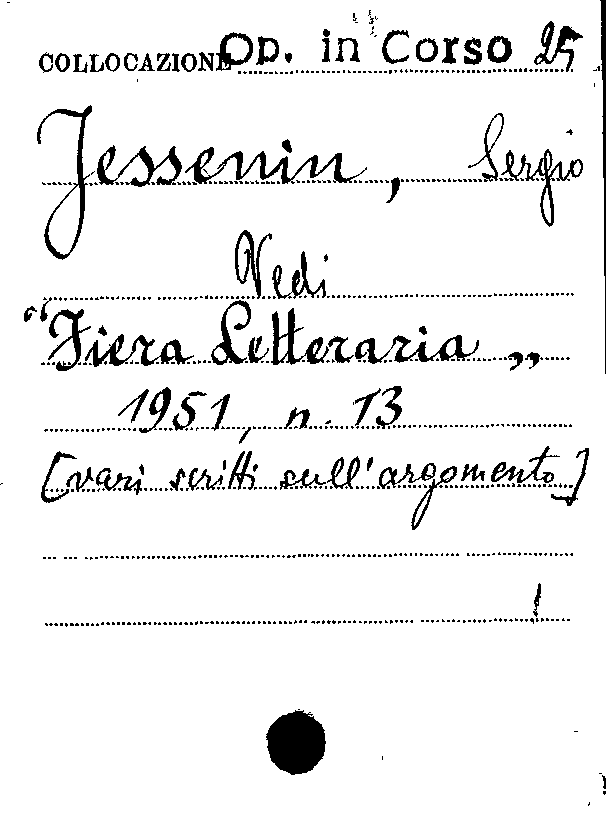 COLLOCAZIONE Op. in Corso 25
Jessenin, Sergio
Vedi
"Fiera Letteraria„
1951, n. 13
[vari scritti sull'argomento]
!